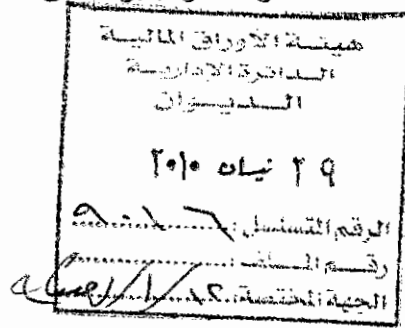 هيئة الأوراق المالية
الدائرة الإدارية
الديوان
٢٩ نيسان ٢٠١٠
الرقم التسلسلي:
رقم الملف:
الجهة المختصة: